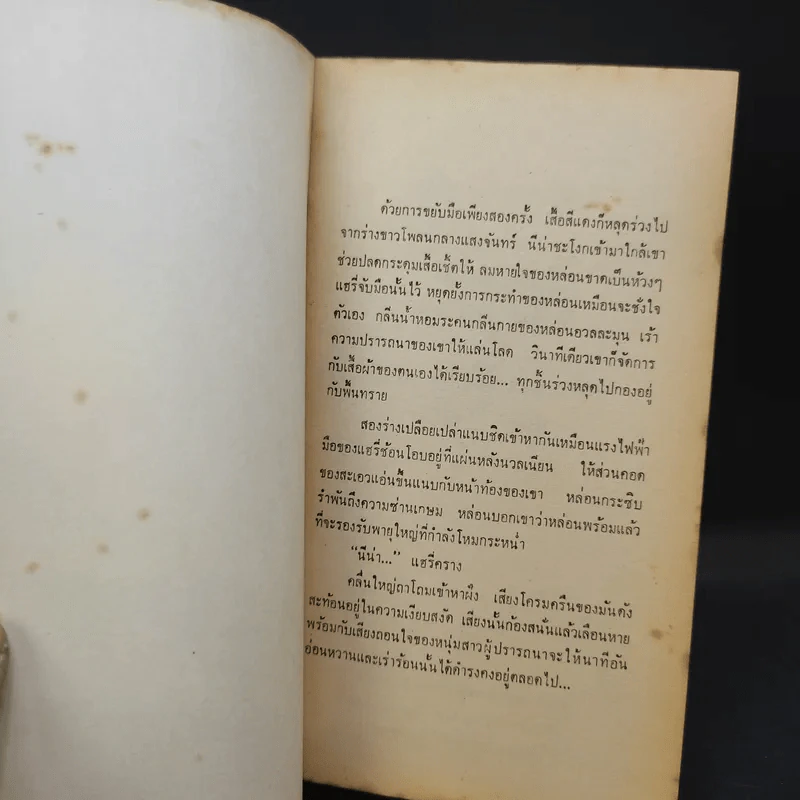 ด้วยการขยับมือเพียงสองครั้ง เสื้อสีแดงก็หลุดร่วงไป
จากร่างขาวโพลนกลางแสงจันทร์ นีน่าชะโงกเข้ามาใกล้เขา
ช่วยปลดกระดุมเสื้อเชิ้ตให้ ลมหายใจของหล่อนขาดเป็นห้วงๆ
แฮรี่จับมือนั้นไว้ หยุดยั้งการกระทำของหล่อนเหมือนจะชั่งใจ
ตัวเอง กลิ่นน้ำหอมระคนกลิ่นกายของหล่อนอวลละมุน เร้า
ความปรารถนาของเขาให้แล่นโลด วินาทีเดียวเขาก็จัดการ
กับเสื้อผ้าของตนเองได้เรียบร้อย... ทุกชิ้นร่วงหลุดไปกองอยู่
กับพื้นทราย
สองร่างเปลือยเปล่าแนบชิดเข้าหากันเหมือนแรงไฟฟ้า
มือของแฮรี่ช้อนโอบอยู่ที่แผ่นหลังนวลเนียน ให้ส่วนคอด
ของสะเอวแอ่นขึ้นแนบกับหน้าท้องของเขา หล่อนกระซิบ
รำพันถึงความซ่านเกษม หล่อนบอกเขาว่าหล่อนพร้อมแล้ว
ที่จะรองรับพายุใหญ่ที่กำลังโหมกระหน่ำ
"นีน่า..." แฮรี่คราง
คลื่นใหญ่ถาโถมเข้าหาฝั่ง เสียงโครมครืนของมันดัง
สะท้อนอยู่ในความเงียบสงัด เสียงนั้นก้องสนั่นแล้วเลือนหาย
พร้อมกับเสียงถอนใจของหนุ่มสาวผู้ปรารถนาจะให้นาทีอัน
อ่อนหวานและเร่าร้อนนั้นได้ดำรงคงอยู่ตลอดไป...